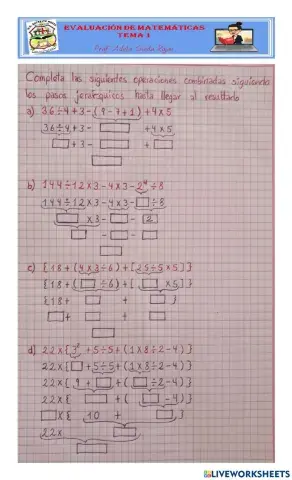 EVALUACIÓN DE MATEMÁTICAS
TEMA 1
Prof. Adela Rojas
Completa las siguientes operaciones combinadas siguiendo
los pasos jerárquicos hasta llegar al resultado
a) 36÷4+3-(9-7+1)+4x5
36÷4+3- +4x5
+3- +
b) 144÷12x3-4x3-2⁴÷8
144÷12x3-4x3- ÷8
x3- - 2
- -
c) {18+(4x3÷6)+[25÷5x5]}
{18+( ÷6)+[ x5]}
{18+ + }
+ +
d) 22x{3²+5÷5+(1x8÷2-4)}
22x{ +5÷5+(1x8÷2-4)}
22x{9+ +( ÷2-4)}
22x{ +( -4)}
x{ 10 + }
22x
LIVEWORKSHEETS